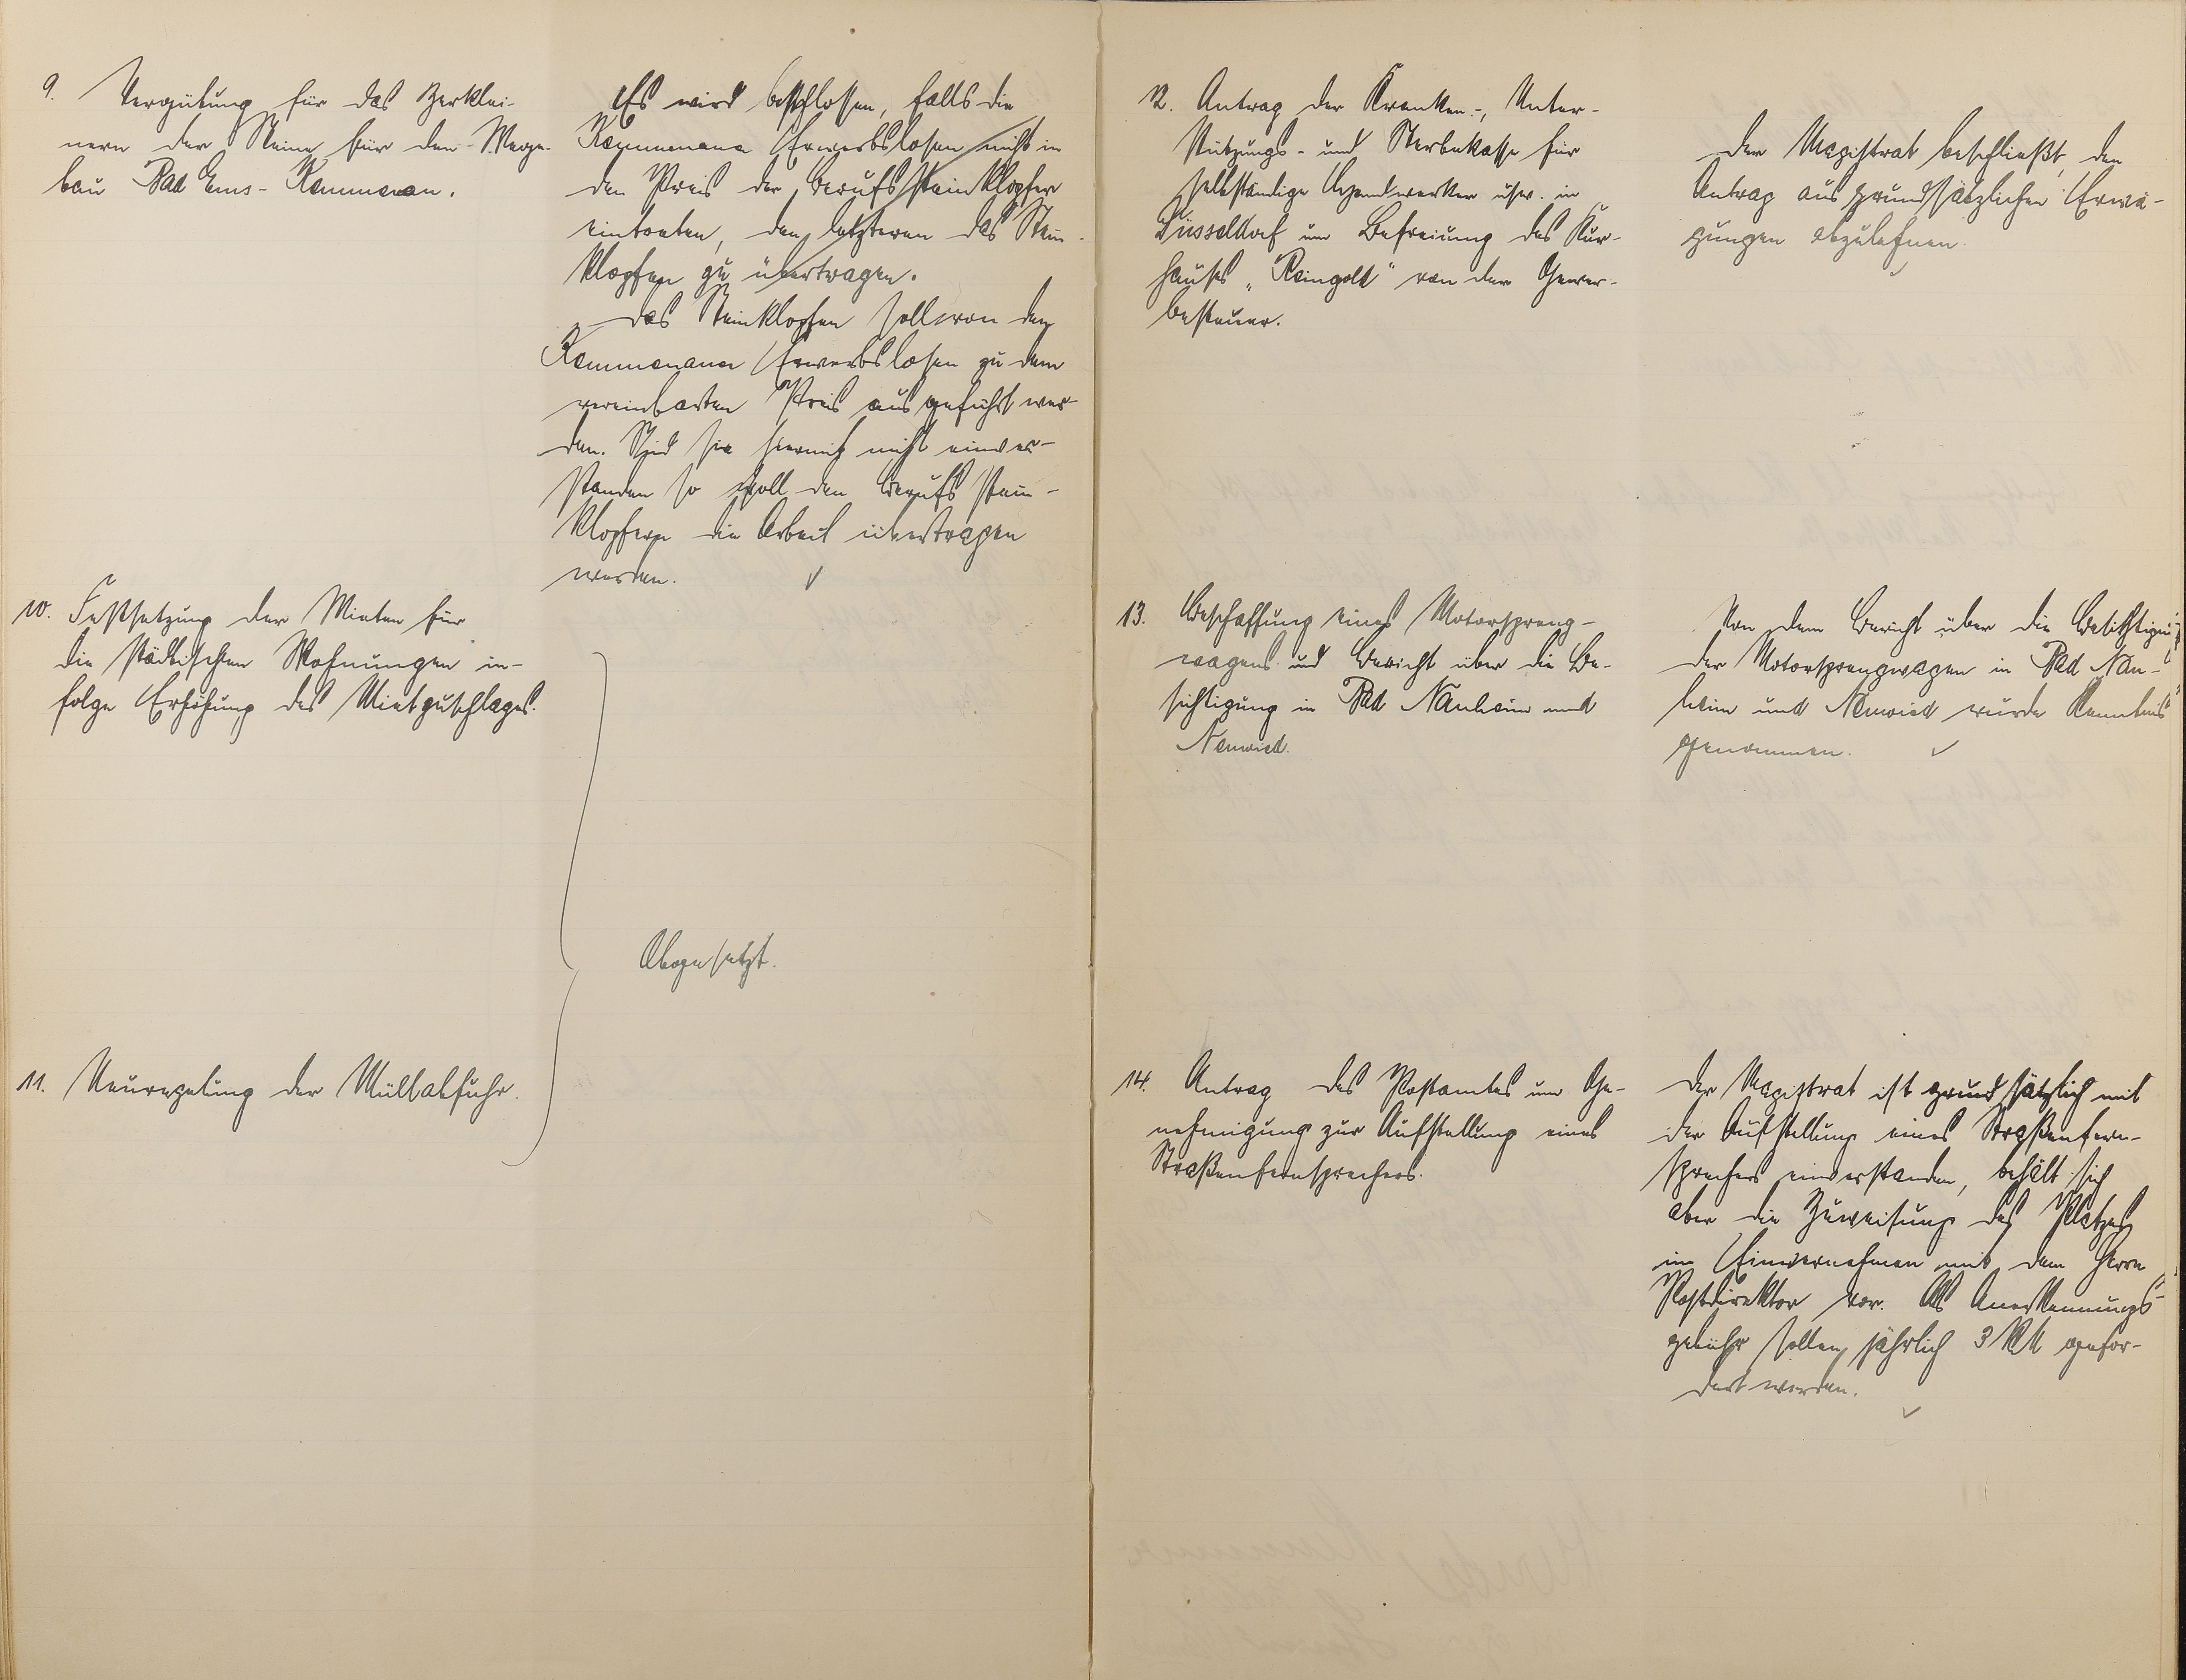 9. Vergütung für das Zerklei-
nern der Steine für den Wege-
bau Bad Ems - Kemmenau.
Es wird beschlossen, falls die
Kemmenauer Erwerbslosen nicht in
den Preis der Berufssteinklopfer
eintreten, den letzteren das Stein-
klopfen zu übertragen.
Das Steinklopfen soll von den
Kemmenauer Erwerbslosen zu dem
vereinbarten Preis ausgeführt wer-
den. Sind sie hiermit nicht einver-
standen so soll den Berufsstein-
klopfern die Arbeit übertragen
werden.
10. Festsetzung der Mieten für
die städtischen Wohnungen in-
folge Erhöhung des Mietzuschlages.
Abgesetzt.
11. Neuregelung der Müllabfuhr.
12. Antrag der Kranken-, Unter-
stützungs- und Sterbekasse für
selbständige Handwerker usw. in
Düsseldorf um Befreiung des Kur-
hauses „Reingolt“ von der Gewer-
besteuer.
Der Magistrat beschließt, den
Antrag aus grundsätzlichen Erwä-
gungen abzulehnen.
13. Beschaffung eines Motorspreng-
wagens und Bericht über die Be-
sichtigung in Bad Nauheim und
Neuwied.
Von dem Bericht über die Besichtigung
der Motorsprengwagen in Bad Nau-
heim und Neuwied wurde Kenntnis
genommen.
14. Antrag des Postamtes um Ge-
nehmigung zur Aufstellung eines
Straßenfernsprechers.
Der Magistrat ist grundsätzlich mit
der Aufstellung eines Straßenfern-
sprechers einverstanden, behält sich
aber die Zuweisung des Platzes
im Einvernehmen mit dem Herrn
Postdirektor vor. Als Anerkennungs-
gebühr sollen jährlich 3 RM gefor-
dert werden.